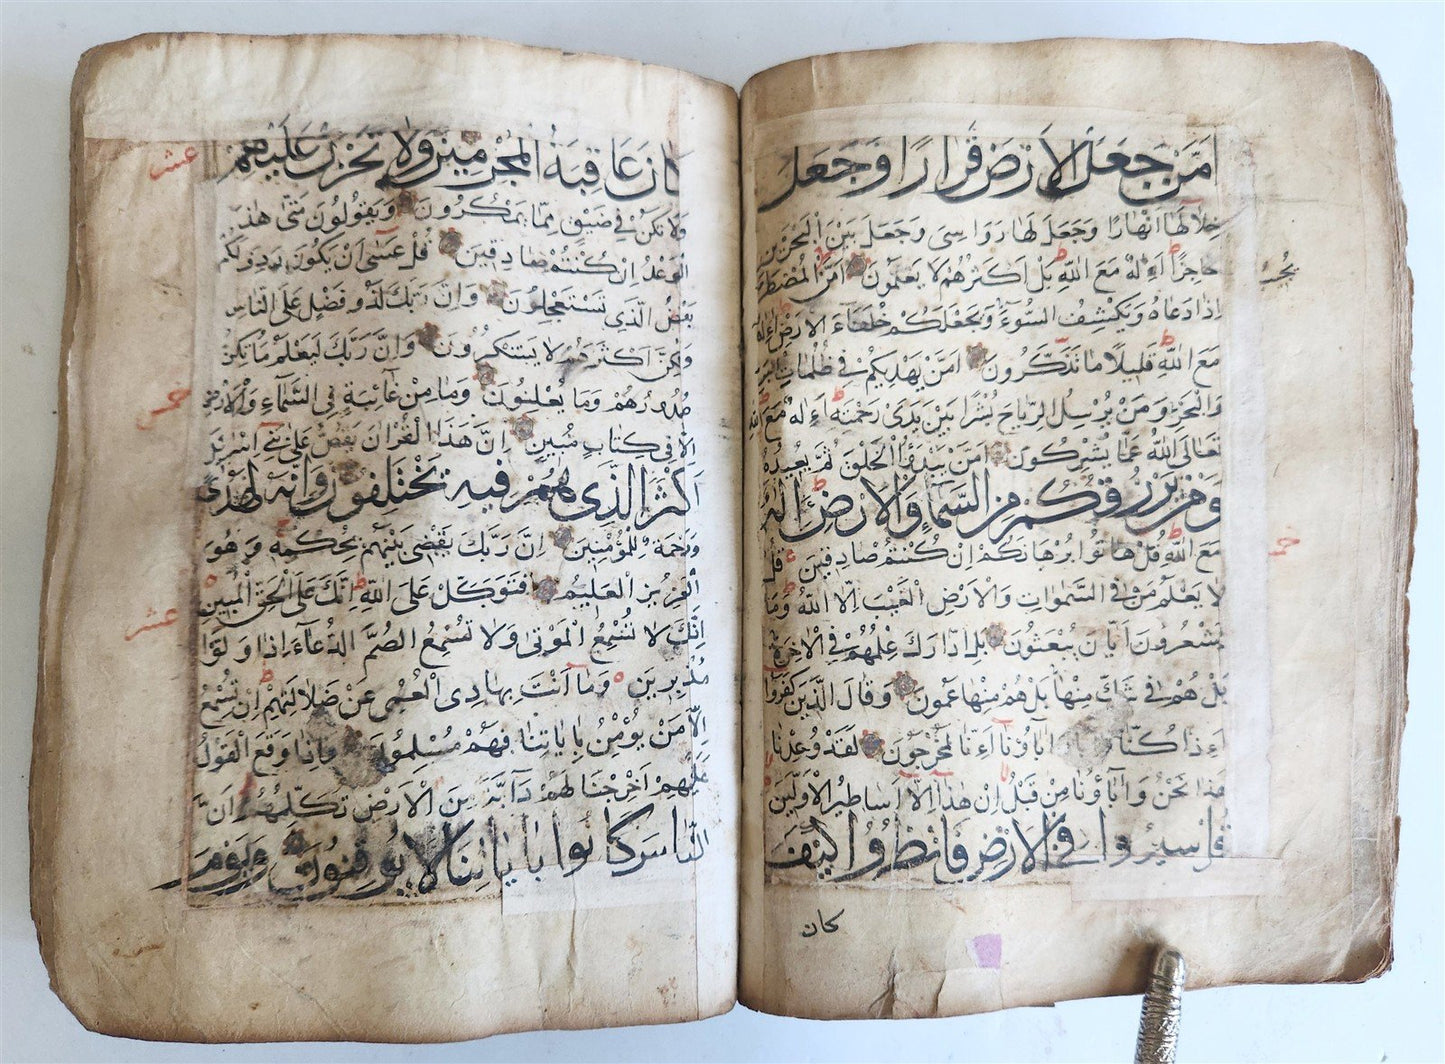 امن جعل الارض قرارا وجعل
خلالها انهارا وجعل لها رواسى وجعل بين البحرين
حاجزا ءاله مع الله بل اكثرهم لا يعلمون امن المضطر
اذا دعاه ويكشف السوء ويجعلكم خلفاء الارض ءاله
مع الله قليلا ما تذكرون امن يهديكم فى ظلمات البر
والبحر ومن يرسل الرياح بشرا بين يدى رحمته ءاله مع الله
تعالى الله عما يشركون امن يبدؤا الخلق ثم يعيده
ومن يرزقكم من السماء والارض ءاله
مع الله قل هاتوا برهانكم ان كنتم صادقين قل
لا يعلم من فى السموات والارض الغيب الا الله وما
يشعرون ايان يبعثون بل ادارك علمهم فى الاخرة
بل هم فى شك منها بل هم منها عمون وقال الذين كفروا
ءاذا كنا واباؤنا ءانا لمخرجون لقد وعدنا
هذا نحن واباؤنا من قبل ان هذا الا اساطير الاولين
قل سيروا فى الارض فانظروا كيف
كان
كان عاقبة المجرمين ولا تحزن عليهم
ولا تكن فى ضيق مما يمكرون ويقولون متى هذا
الوعد ان كنتم صادقين قل عسى ان يكون ردف لكم
بعض الذى تستعجلون وان ربك لذو فضل على الناس
ولكن اكثرهم لا يشكرون وان ربك ليعلم ما تكن
صدورهم وما يعلنون وما من غائبة فى السماء والارض
الا فى كتاب مبين ان هذا القران يقص على بنى اسرئيل
اكثر الذى هم فيه يختلفون وانه لهدى
ورحمة للمؤمنين ان ربك يقضى بينهم بحكمه وهو
العزيز العليم فتوكل على الله انك على الحق المبين
انك لا تسمع الموتى ولا تسمع الصم الدعاء اذا ولوا
مدبرين وما انت بهادى العمى عن ضلالتهم ان تسمع
الا من يؤمن باياتنا فهم مسلمون واذا وقع القول
عليهم اخرجنا لهم دابة من الارض تكلمهم ان
الناس كانوا باياتنا لا يوقنون ويوم
عشر
عشر